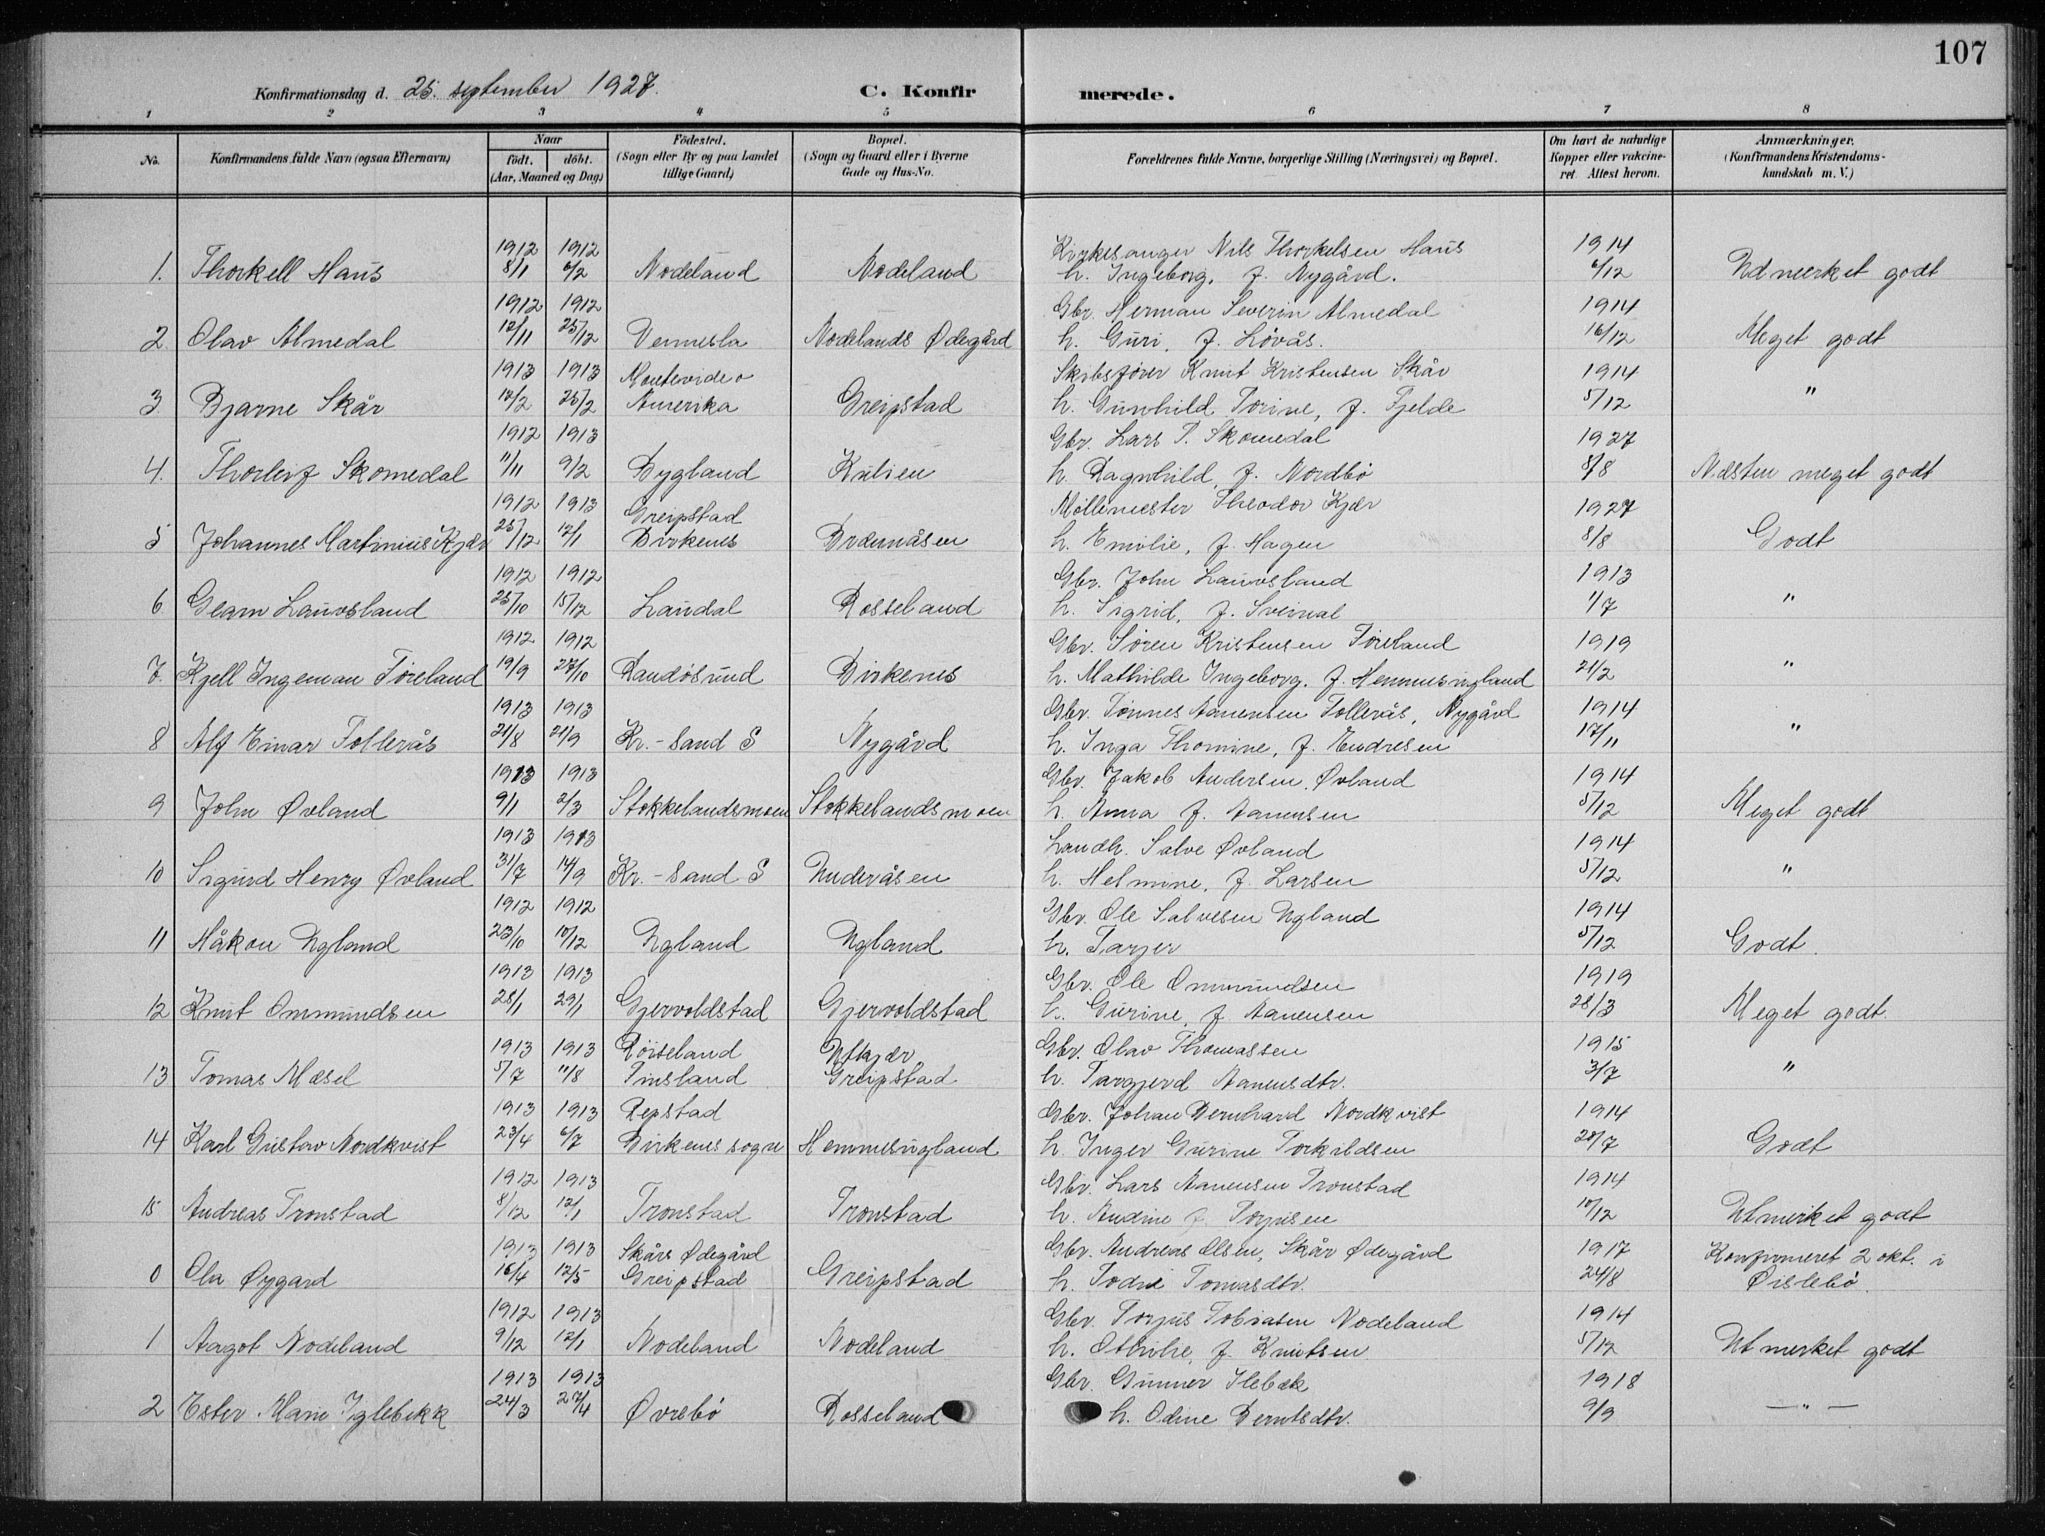 107
Konfirmationsdag d. 25. september 1927.
C. Konfirmerede.
1 2 3 4 5 6 7 8
No.
Konfirmandens fulde Navn (ogsaa Efternavn)
Naar
født. døbt.
(Aar, Maaned og Dag)
Fødested.
(Sogn eller By og paa Landet
tillige Gaard)
Bopæl.
(Sogn og Gaard eller i Byerne
Gade og Hus-No.
Forældrenes fulde Navne, borgerlige Stilling (Næringsvei) og Bopæl.
Om havt de naturlige
Kopper eller vakcine-
ret. Attest herom.
Anmærkninger.
(Konfirmandens Kristendoms-
kundskab m. V.)
1912 1912 Kirkesanger Nils Thorkelsen Haus 1914
1. Thorkell Haus 8/1 6/2 Nodeland Nodeland h. Ingeborg, f. Nygård. 6/12 Udmerket godt
1912 1912 Gbr. Herman Severin Almedal 1914
2 Olav Almedal 12/11 25/12 Vennesla Nodelands Ødegård h. Guri, f. Løvås. 16/12 Meget godt
1913 1913 Montevideo Skibsfører Knut Kristensen Skår 1914
3 Bjarne Skår 12/2 25/2 Amerika Greipstad h. Gunhild Torine, f. Fjelde 5/12 "
1912 1913 Gbr. Lars T. Skomedal 1927
4. Thorleif Skomedal 11/11 9/2 Bygland Kulien h. Ragnhild, f. Nordbø 8/8 Næsten meget godt
1912 1913 Greipstad Møllemester Theodor Kjær 1927
5 Johannes Martinius Kjær 25/12 12/1 Birkenes Brennåsen h. Emilie, f. Hagen 8/8 Godt
1912 1912 Gbr. John Lauvsland 1913
6 Geam Lauvsland 25/10 15/12 Laudal Rosseland h. Sigrid, f. Sveinal 1/7 "
1912 1912 Gbr. Søren Kristensen Føreland 1919
7. Kjell Ingeman Føreland 19/9 27/10 Randøsund Birkenes h. Mathilde Ingeborg, f. Hemmesugland 21/2 "
1913 1913 Gbr. Tønnes Aanensen Follerås, Nygård 1914
8 Alf Einar Follerås 21/8 21/9 Kr.-sand S Nygård h. Inga Thomine, f. Endresen 17/11 "
1913 1913 Gbr. Jakob Andersen Øvland 1914
9 John Øvland 9/1 2/3 Stokkelandsmoen Stokkelandsmoen h. Anna f. Aanensen 5/12 Meget godt
1913 1913 Landh. Salve Øvland 1914
10 Sigurd Henry Øvland 31/7 14/9 Kr.-sand S Underåsen h. Helmine, f. Larsen 5/12 "
1912 1912 Gbr. Ole Salvesen Ugland 1914
11 Håkon Ugland 23/10 10/12 Ugland Ugland h. Tarjer 5/12 Godt.
1913 1913 Gbr. Ole Ommundsen 1919
12 Knut Ommundsen 28/1 29/1 Gjervoldstad Gjervoldstad h. Gurine, f. Aanensen 28/3 Meget godt.
1913 1913 Røiseland Uftkjær Gbr. Olav Thomassen 1915
13 Tomas Mæsel 5/7 11/8 Finsland Greipstad h. Targjerd Aanensdtr. 3/7 "
1913 1913 Repstad Gbr. Johan Bernhard Nordkvist 1914
14 Karl Gustav Nordkvist 23/4 6/7 Birkenes sogn Hemmesugland h. Inger Gurine Torkildsen 20/7 Godt
1912 1913 Gbr. Lars Aanensen Tronstad 1914
15 Andreas Tronstad 8/12 12/1 Tronstad Tronstad h. Andine f. Torjusen 10/12 Utmerket godt
1913 1913 Skårs Ødegård Gbr. Andreas Olsen, Skår Ødegård 1917 Konfirmeret 2 okt. i
0 Ola Øygard 16/4 12/5 Greipstad Greipstad h. Todne Tomasdtr. 24/8 Øislebø.
1912 1913 Gbr. Torjus Tobiasen Nodeland 1914
1 Aagot Nodeland 9/12 12/1 Nodeland Nodeland h. Othilie, f. Knutsen 5/12 Utmerket godt
1913 1913 Gbr. Gunner Ilebæk 1918
2 Ester Marie Iglebekk 24/3 27/4 Øvrebø Rosseland h. Odine Berntsdtr. 9/9 — " —